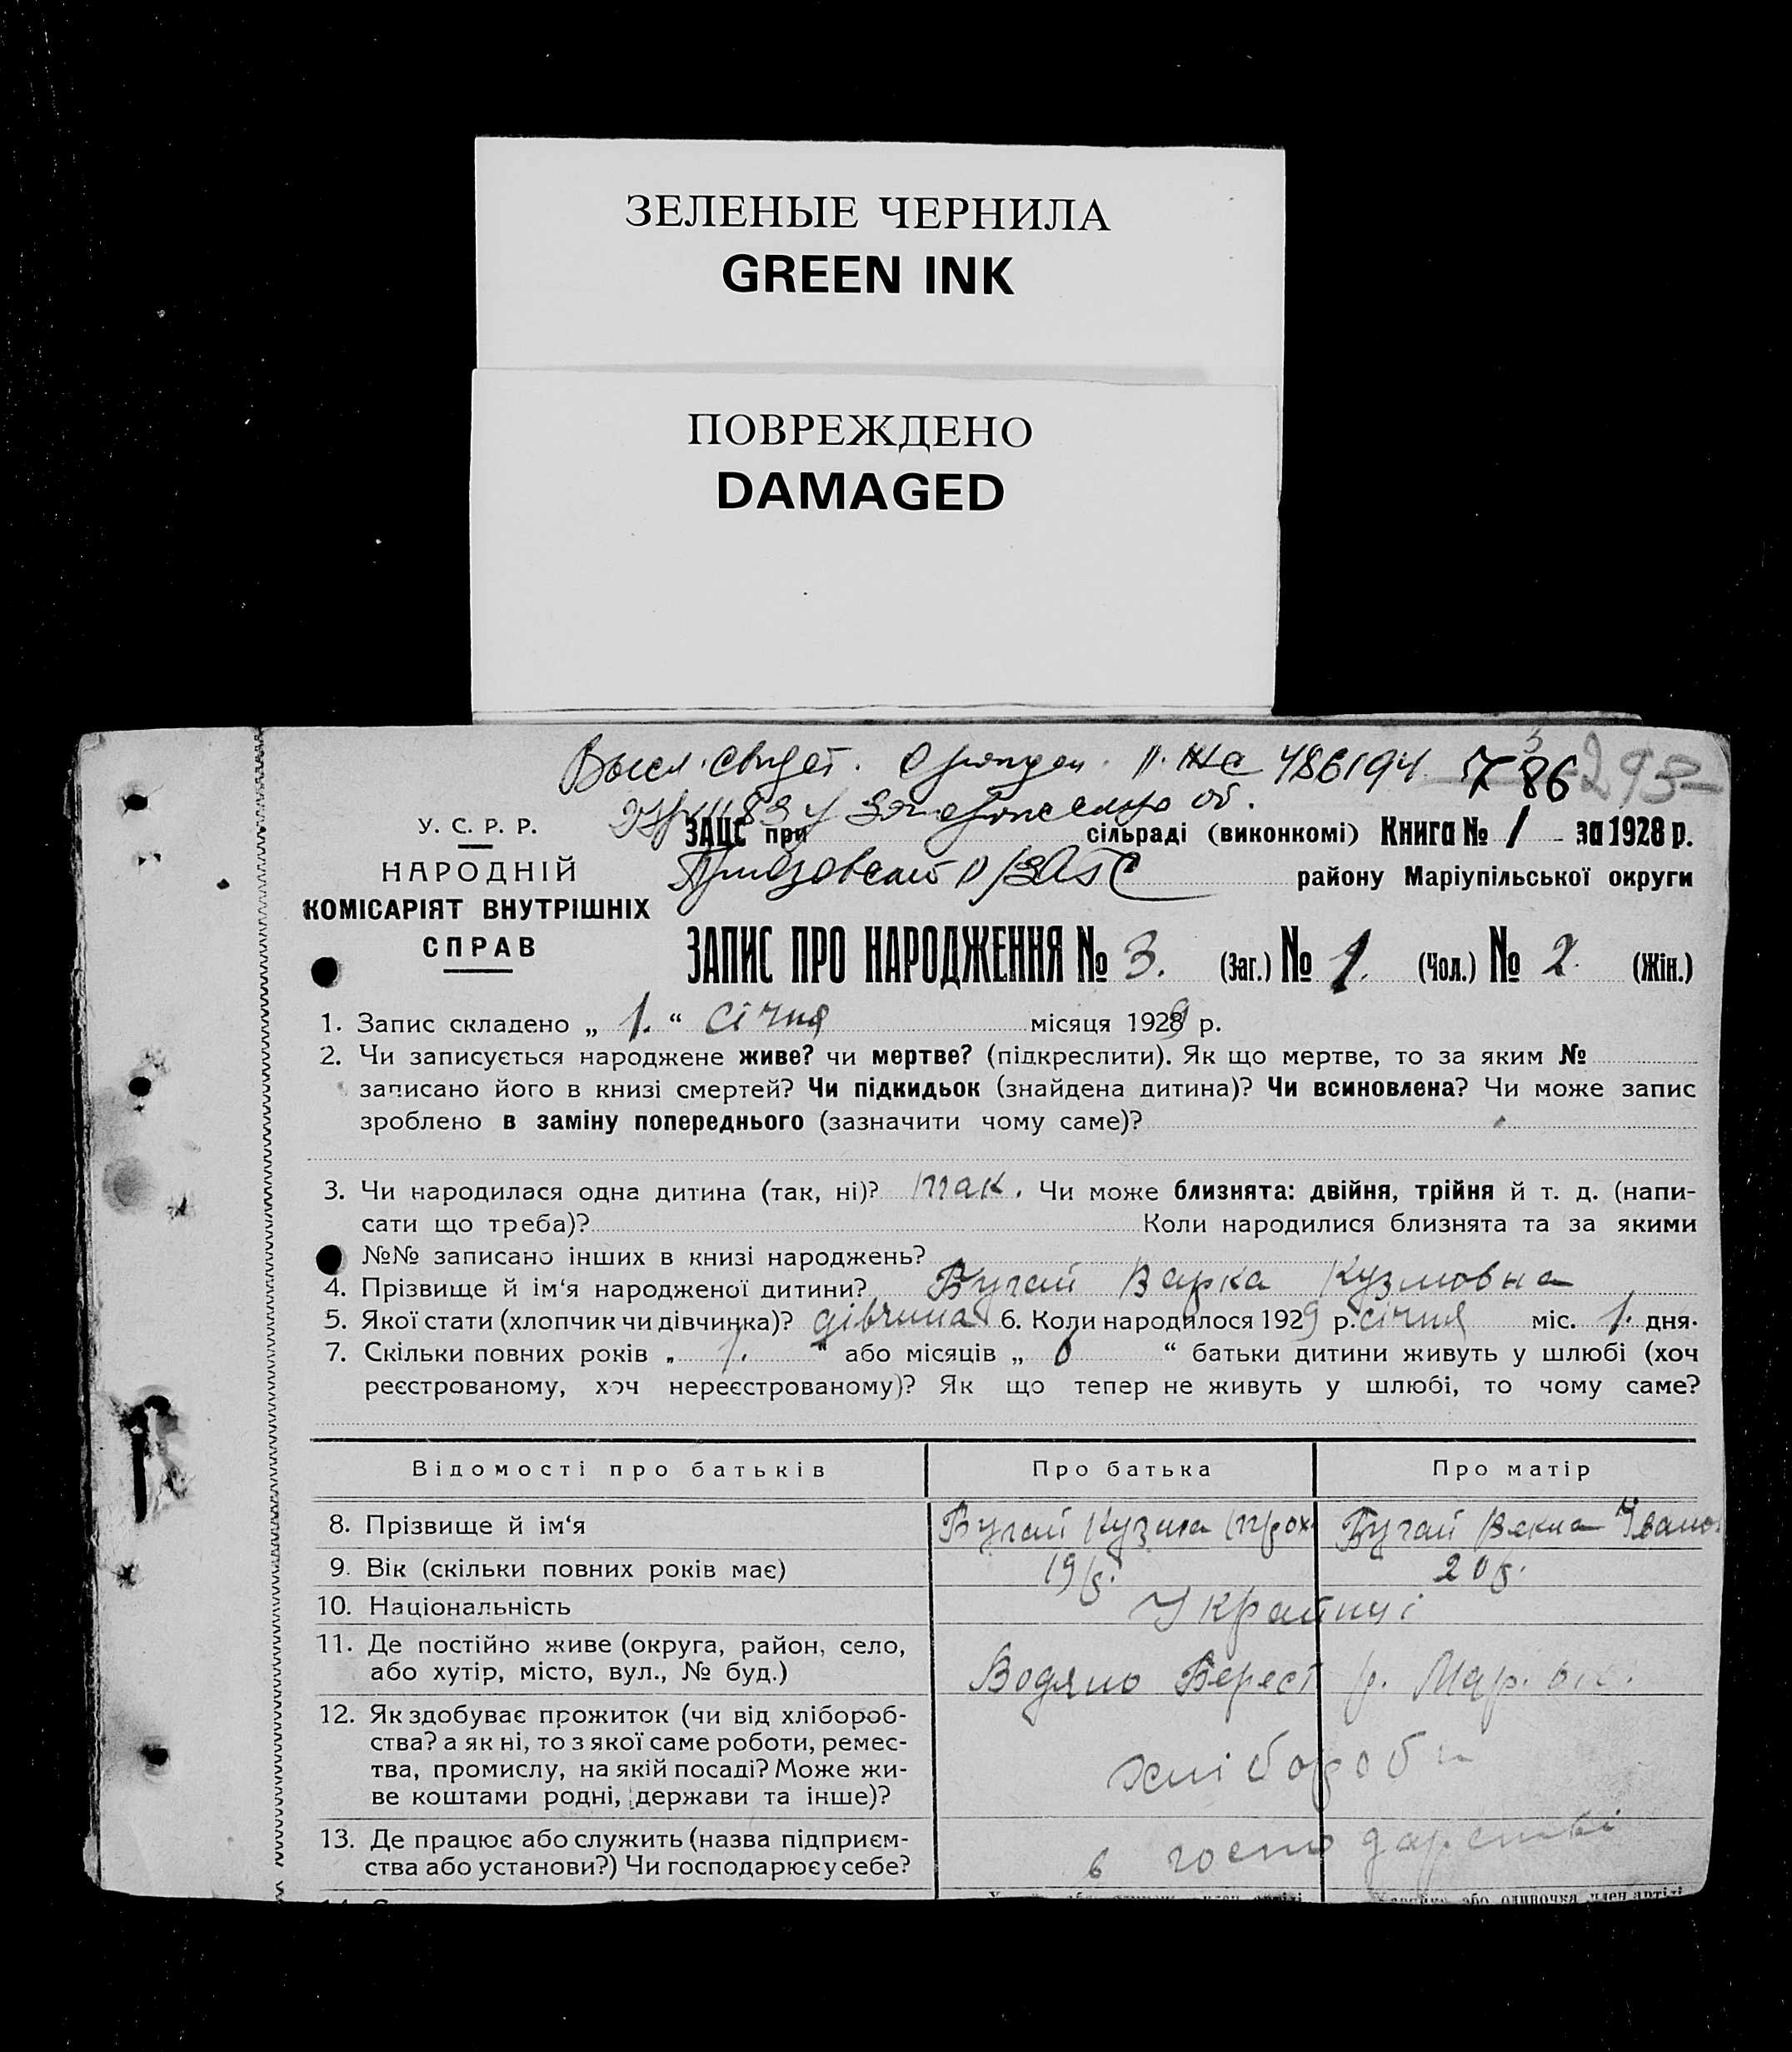 ЗЕЛЕНЫЕ ЧЕРНИЛА
GREEN INK
ПОВРЕЖДЕНО
DAMAGED
486194 86 293
У. С. Р. Р.
НАРОДНІЙ
КОМІСАРІЯТ ВНУТРІШНІХ
СПРАВ
ЗАЦС при сільраді (виконкомі) Книга № 1 за 1928 р.
району Маріупільської округи
ЗАПИС ПРО НАРОДЖЕННЯ № 3. (Заг.) № 1. (Чол.) № 2. (Жін.)
1. Запис складено „ 1. “ Січня місяця 1929 р.
2. Чи записується народжене живе? чи мертве? (підкреслити). Як що мертве, то за яким №
записано його в книзі смертей? Чи підкидьок (знайдена дитина)? Чи всиновлена? Чи може запис
зроблено в заміну попереднього (зазначити чому саме)?
3. Чи народилася одна дитина (так, ні)? так. Чи може близнята: двійня, трійня й т. д. (напи-
сати що треба)? Коли народилися близнята та за якими
№№ записано інших в книзі народжень?
4. Прізвище й ім‘я народженої дитини? Бугай Варка Кузмовна
5. Якої стати (хлопчик чи дівчинка)? дівчина 6. Коли народилось 1929 р. січня міс. 1. дня.
7. Скільки повних років „ 1. “ або місяців „ “ батьки дитини живуть у шлюбі (хоч
реєстрованому, хоч нереєстрованому)? Як що тепер не живуть у шлюбі, то чому саме?
Відомості про батьків Про батька Про матір
8. Прізвище й ім‘я Бугай Кузма Трох Бугай Івано
9. Вік (скільки повних років має) 19 р. 20 р.
10. Національність Українці
11. Де постійно живе (округа, район, село,
або хутір, місто, вул., № буд.) Водяно Берест р. Мар. ок.
12. Як здобуває прожиток (чи від хлібороб-
ства? а як ні, то з якої саме роботи, ремес-
тва, промислу, на якій посаді? Може жи-
ве коштами родні, держави та інше)? хлібороби
13. Де працює або служить (назва підприєм-
ства або установи?) Чи господарює у себе? в господарстві